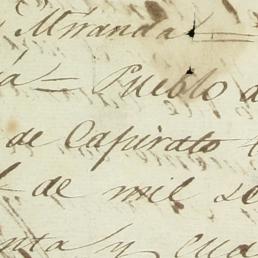 Miranda
Pueblo d
de Capirato
de mil se
nta y cua